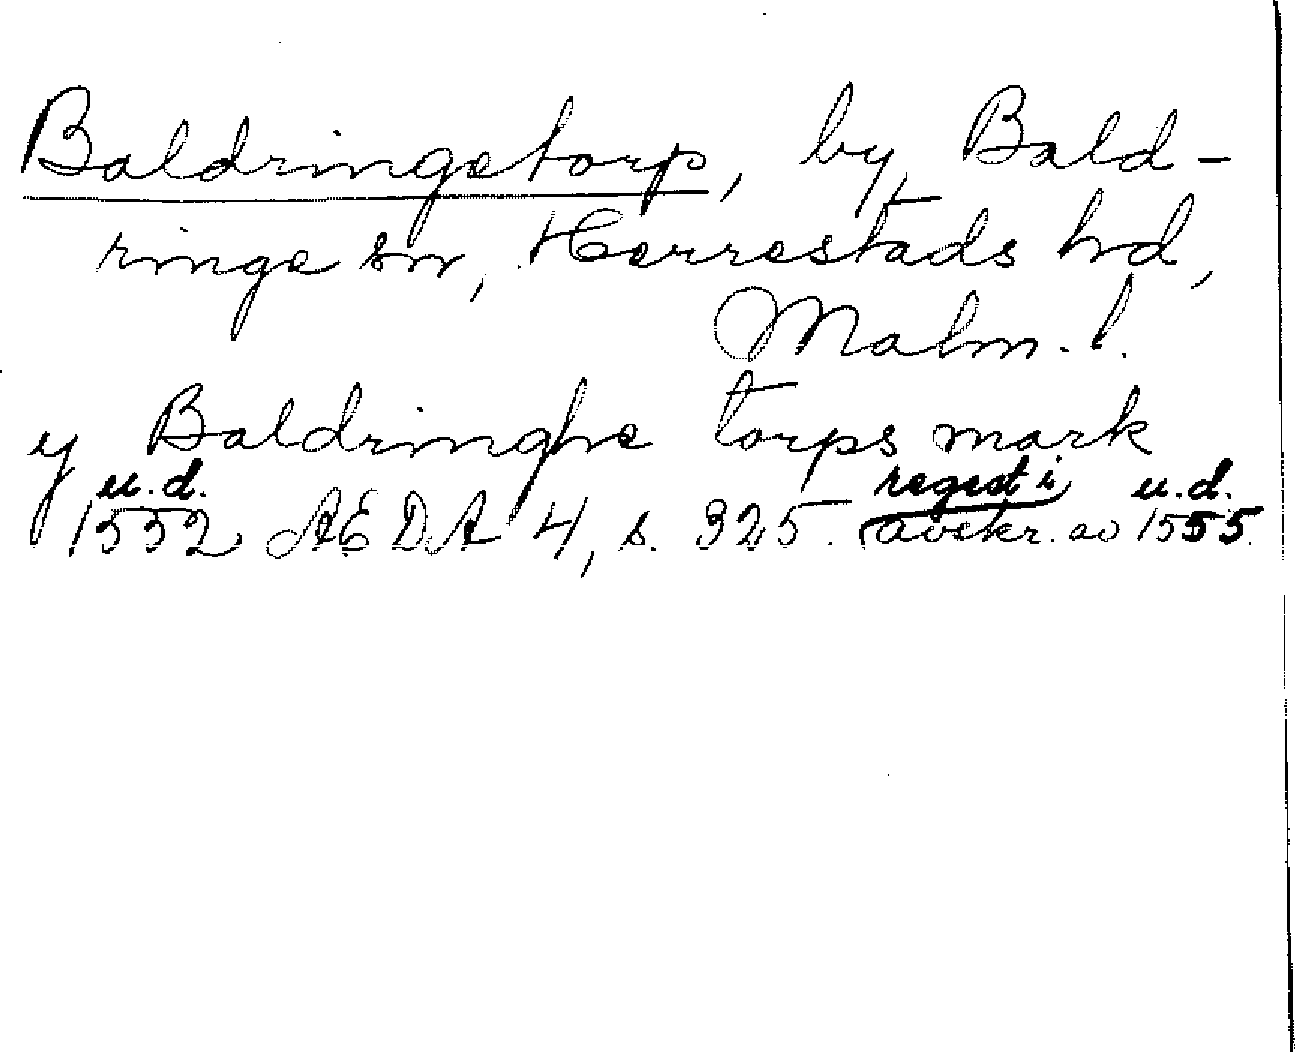 Baldringetorp, by, Bald-
ringe sn, Herrestads hd,
Malm. l.
y Baldringhe torps mark
u.d. regest i u.d.
1552 AEDA 4, s. 325. avskr. av 1555.